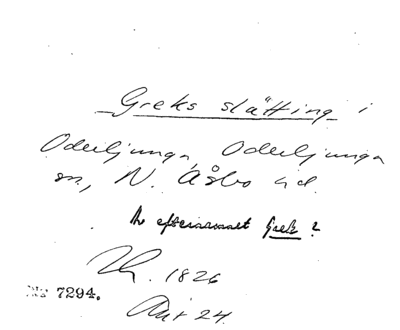 Greks slätting i
Oderljunga, Oderljunga
sn, N. Åsbo hd.
Av efternamnet Grek?
Th. 1826
No 7294.
Avt 24.